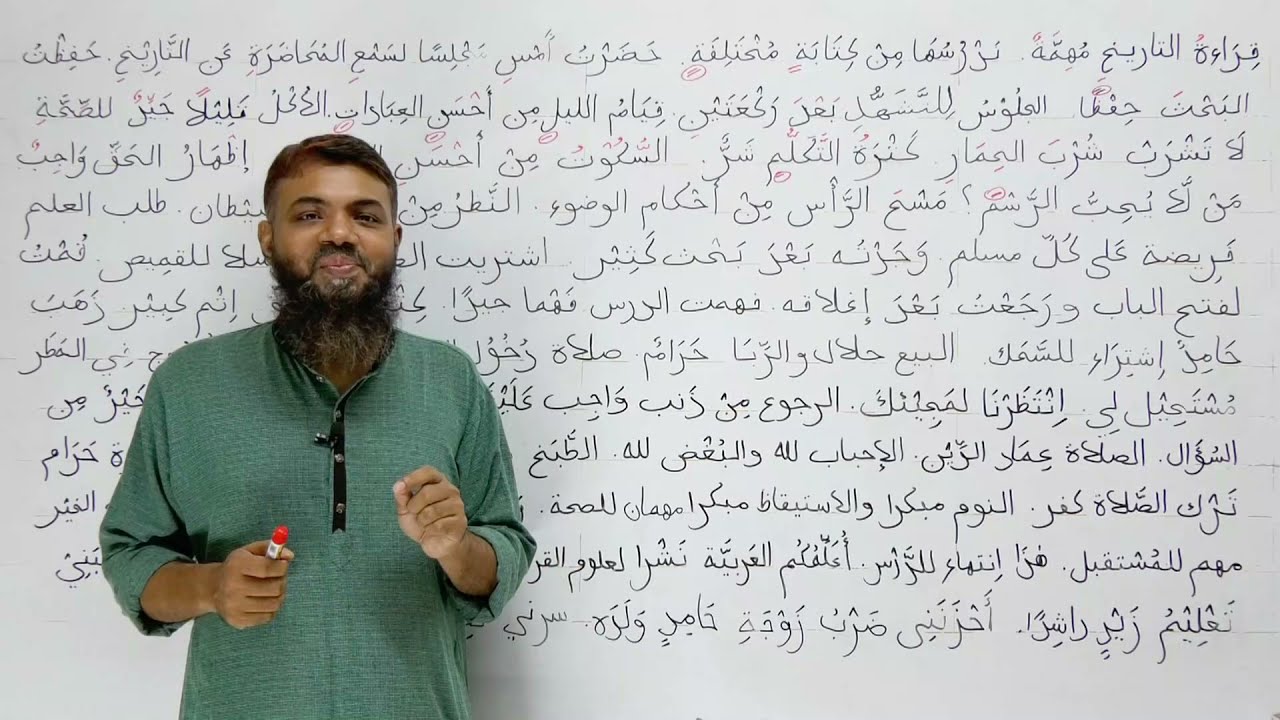 قِرَاءَةُ التاريخِ مُهِمَّةٌ. نَدْرُسُهَا مِنْ كِتَابَةٍ مُخْتَلِفَةٍ. حَضَرْتُ أَمْسِ مَجْلِسًا لسَمْعِ المُحَاضَرَةِ عَنِ التَّارِيْخِ. حَفِظْتُ
البَحْثَ حِفْظًا الجُلُوْسُ لِلتَّشَهُّدِ بَعْدَ رَكْعَتَيْنِ. قِيَامُ الليلِ مِن أَحْسَنِ العِبَادَاتِ. الأَكْلُ قَلِيْلًا خَيْرٌ للصِّحَّةِ
لَا تَشْرَبْ شُرْبَ الحِمَارِ. كَثْرَةُ التَّكَلُّمِ شَرٌّ. السُّكُوْتُ مِنْ أَحْسَنِ إِظْهَارُ الحَقِّ وَاجِبٌ
مَنْ لَّا يُحِبُّ الرَّسْمَ؟ مَسْحُ الرَّأْسِ مِنْ أَحْكَامِ الوضوء. النَّظَرُ مِنْ طلب العلم
فَرِيضة عَلى كُلِّ مسلم. وَجَدْتُه بَعْدَ بَحْث كَثِيْر. اشتريت للقميص. قُمْتُ
لفتح الباب ورَجَعْتُ بَعْدَ إغلاقه. فهمت الدرس فَهْما جيدًا. إثم كبير ذَهَبَ
حَامِدٌ إِشتِرَاءِ للسَّمَك. البيع حلال والرِّبَا حَرَامٌ. صلاة دُخُوْلِ فِي المَطَرِ
مُسْتَحِيْل لِي. اِنْتَظَرْنَا لمَجِيْئكَ. الرجوع مِنْ ذَنب وَاجِب عَلَيْنَا خَيْرٌ مِن
السُؤَال. الصلاة عِمَاد الدِّيْن. الإحباب لله والبُغْض لله. الطَّبْخ حَرَام
تَرْك الصَّلَاة كفر. النوم مبكرا والاستيقاظ مبكرا مهمان للصحة.
مهم للمُسْتقبل. هٰذَا اِنتهاء للدَّرْسِ. أُعَلِّمُكُم العَرَبِيَّة نَشْرا لعلوم
تَعْلِيْمُ زَيْدٍ راشِدًا. أَحْزَنَنِي ضَرْبُ زَوْجَةِ حَامِدٍ وَلَدَه. سرني